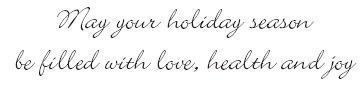 May your holiday season
be filled with love, health and joy